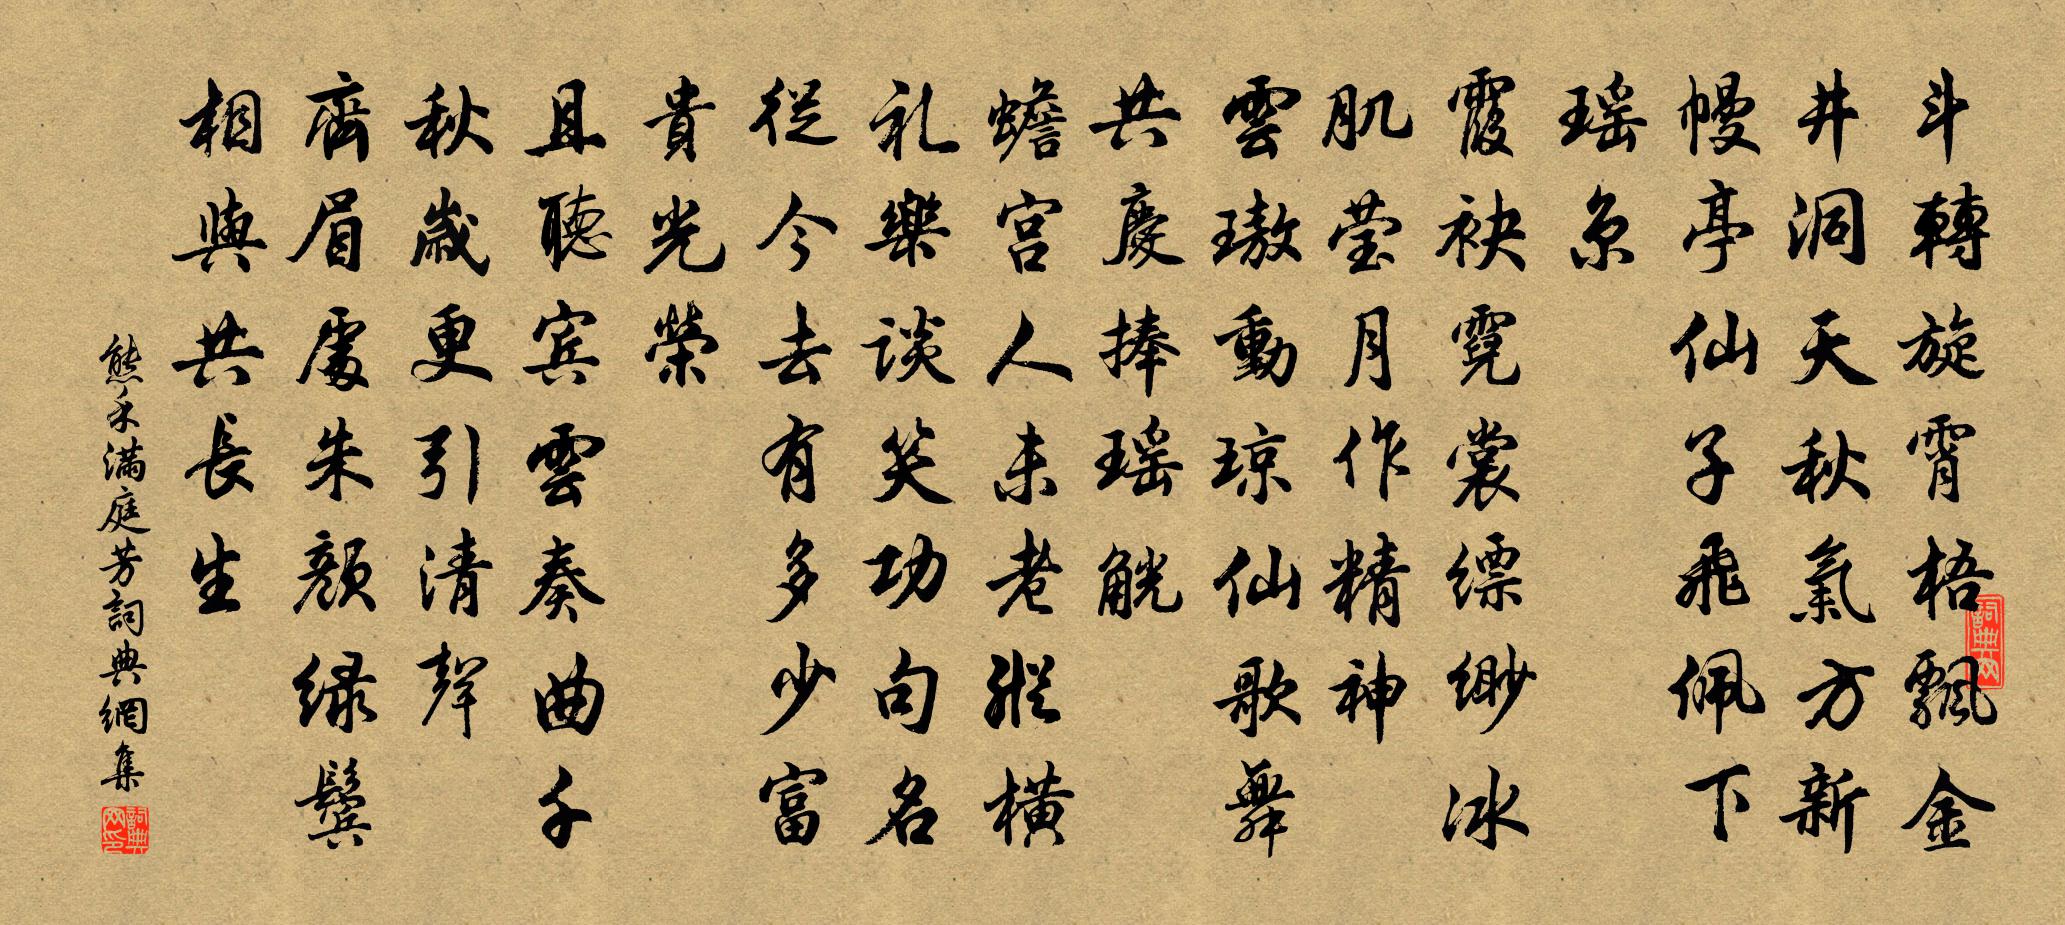 斗轉旋霄梧飄金
井洞天秋氣方新
幔亭仙子飛佩下
瑶京
霞袂霓裳縹緲冰
肌莹月作精神
雲璈動琼仙歌舞
共慶捧瑶觥
蟾宫人未老縱横
礼樂談笑功名
從今去有多少富
貴光榮
且聽宾雲奏曲千
秋歲更引清聲
齊眉處朱顔緑鬓
相與共長生
熊禾滿庭芳詞典網集
詞典网
詞典网印